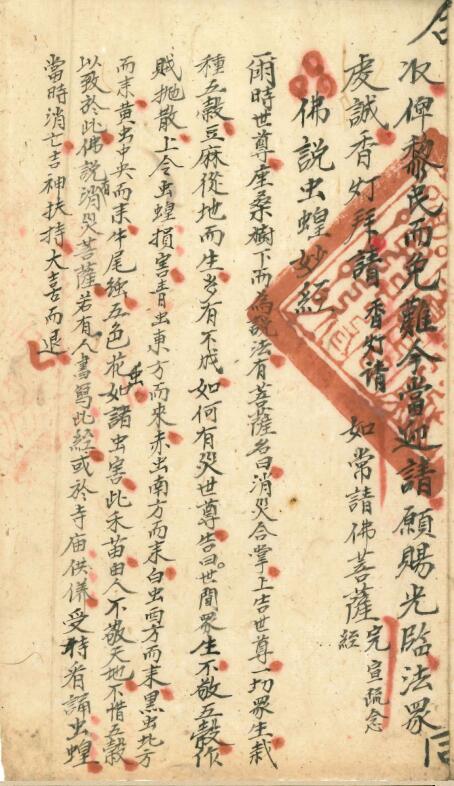 俾黎民而免難今當迎請願賜光臨法眾
虔誠香灯拜請 香灯请 如常請佛菩薩 完宣疏念經
佛說虫蝗妙經
爾時世尊座桑樹下而為說法有菩薩名曰消災合掌上告世尊一切眾生栽
種五穀豆麻從地而生有不成如何有災世尊告曰世間眾生不敬五穀作
賊抛散上令虫蝗損害青虫東方而來赤虫南方而来白虫西方而来黑虫北方
而来黄虫中央而来牛尾五色花虫如諸虫害此禾苗由人不敬天地不惜五穀
以致於此佛說消災菩薩若有人書寫此經或於寺庙供儀受持看誦虫蝗
當時消亡吉神扶持大喜而退